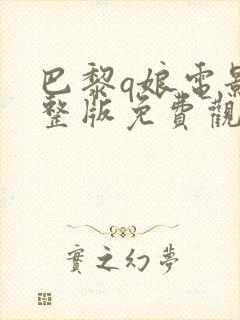 巴黎q娘電影
整版免費觀
實之幻夢